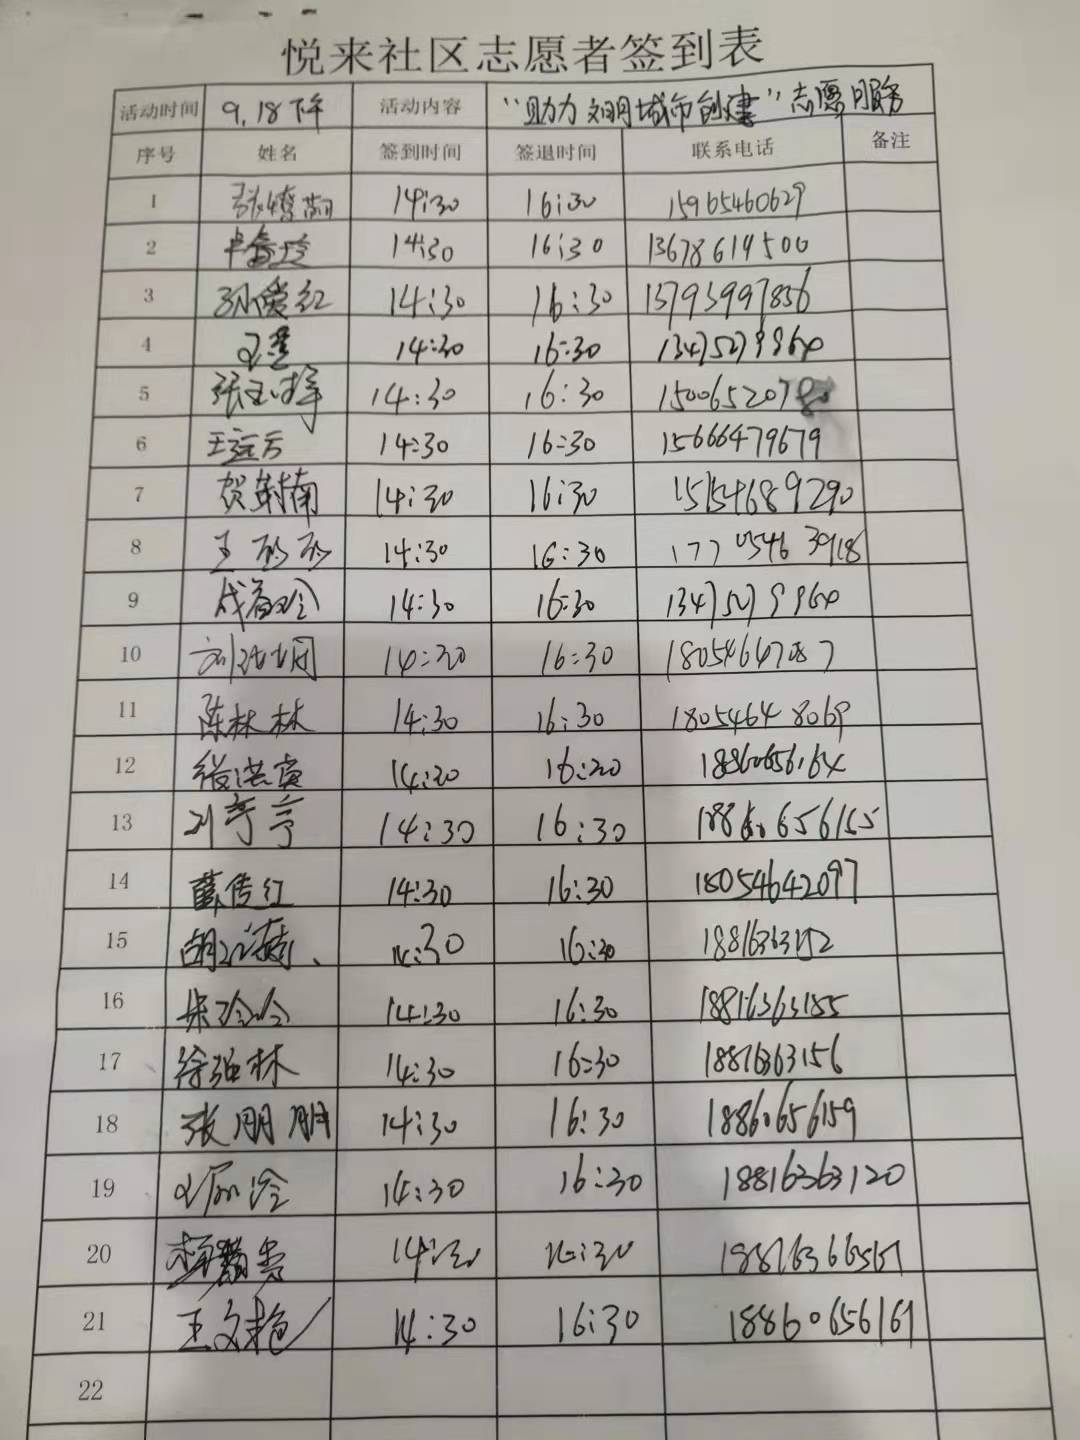 悦来社区志愿者签到表
活动时间 9.18下午 活动内容 “助力文明城市创建”志愿服务
序号 姓名 签到时间 签退时间 联系电话 备注
1 14:30 16:30 15965460629
2 14:30 16:30 13678614500
3 孙爱红 14:30 16:30 13793997856
4 14:30 16:30 13475279964
5 14:30 16:30
6 14:30 16:30 15666479679
7 14:30 16:30 15154689290
8 王 14:30 16:30 17705463918
9 14:30 16:30 13475279964
10 14:30 16:30 18054647087
11 陈林林 14:30 16:30 18054648069
12 14:20 16:20 18860656164
13 刘亭亭 14:30 16:30 18860656155
14 薛传红 14:30 16:30 18054642097
15 14:30 16:30
16 朱玲玲 14:30 16:30 18816363155
17 徐强林 14:30 16:30 18816363156
18 张朋朋 14:30 16:30 18860656159
19 14:30 16:30 18816363120
20 14:30 16:30
21 王文艳 14:30 16:30 18860656161
22